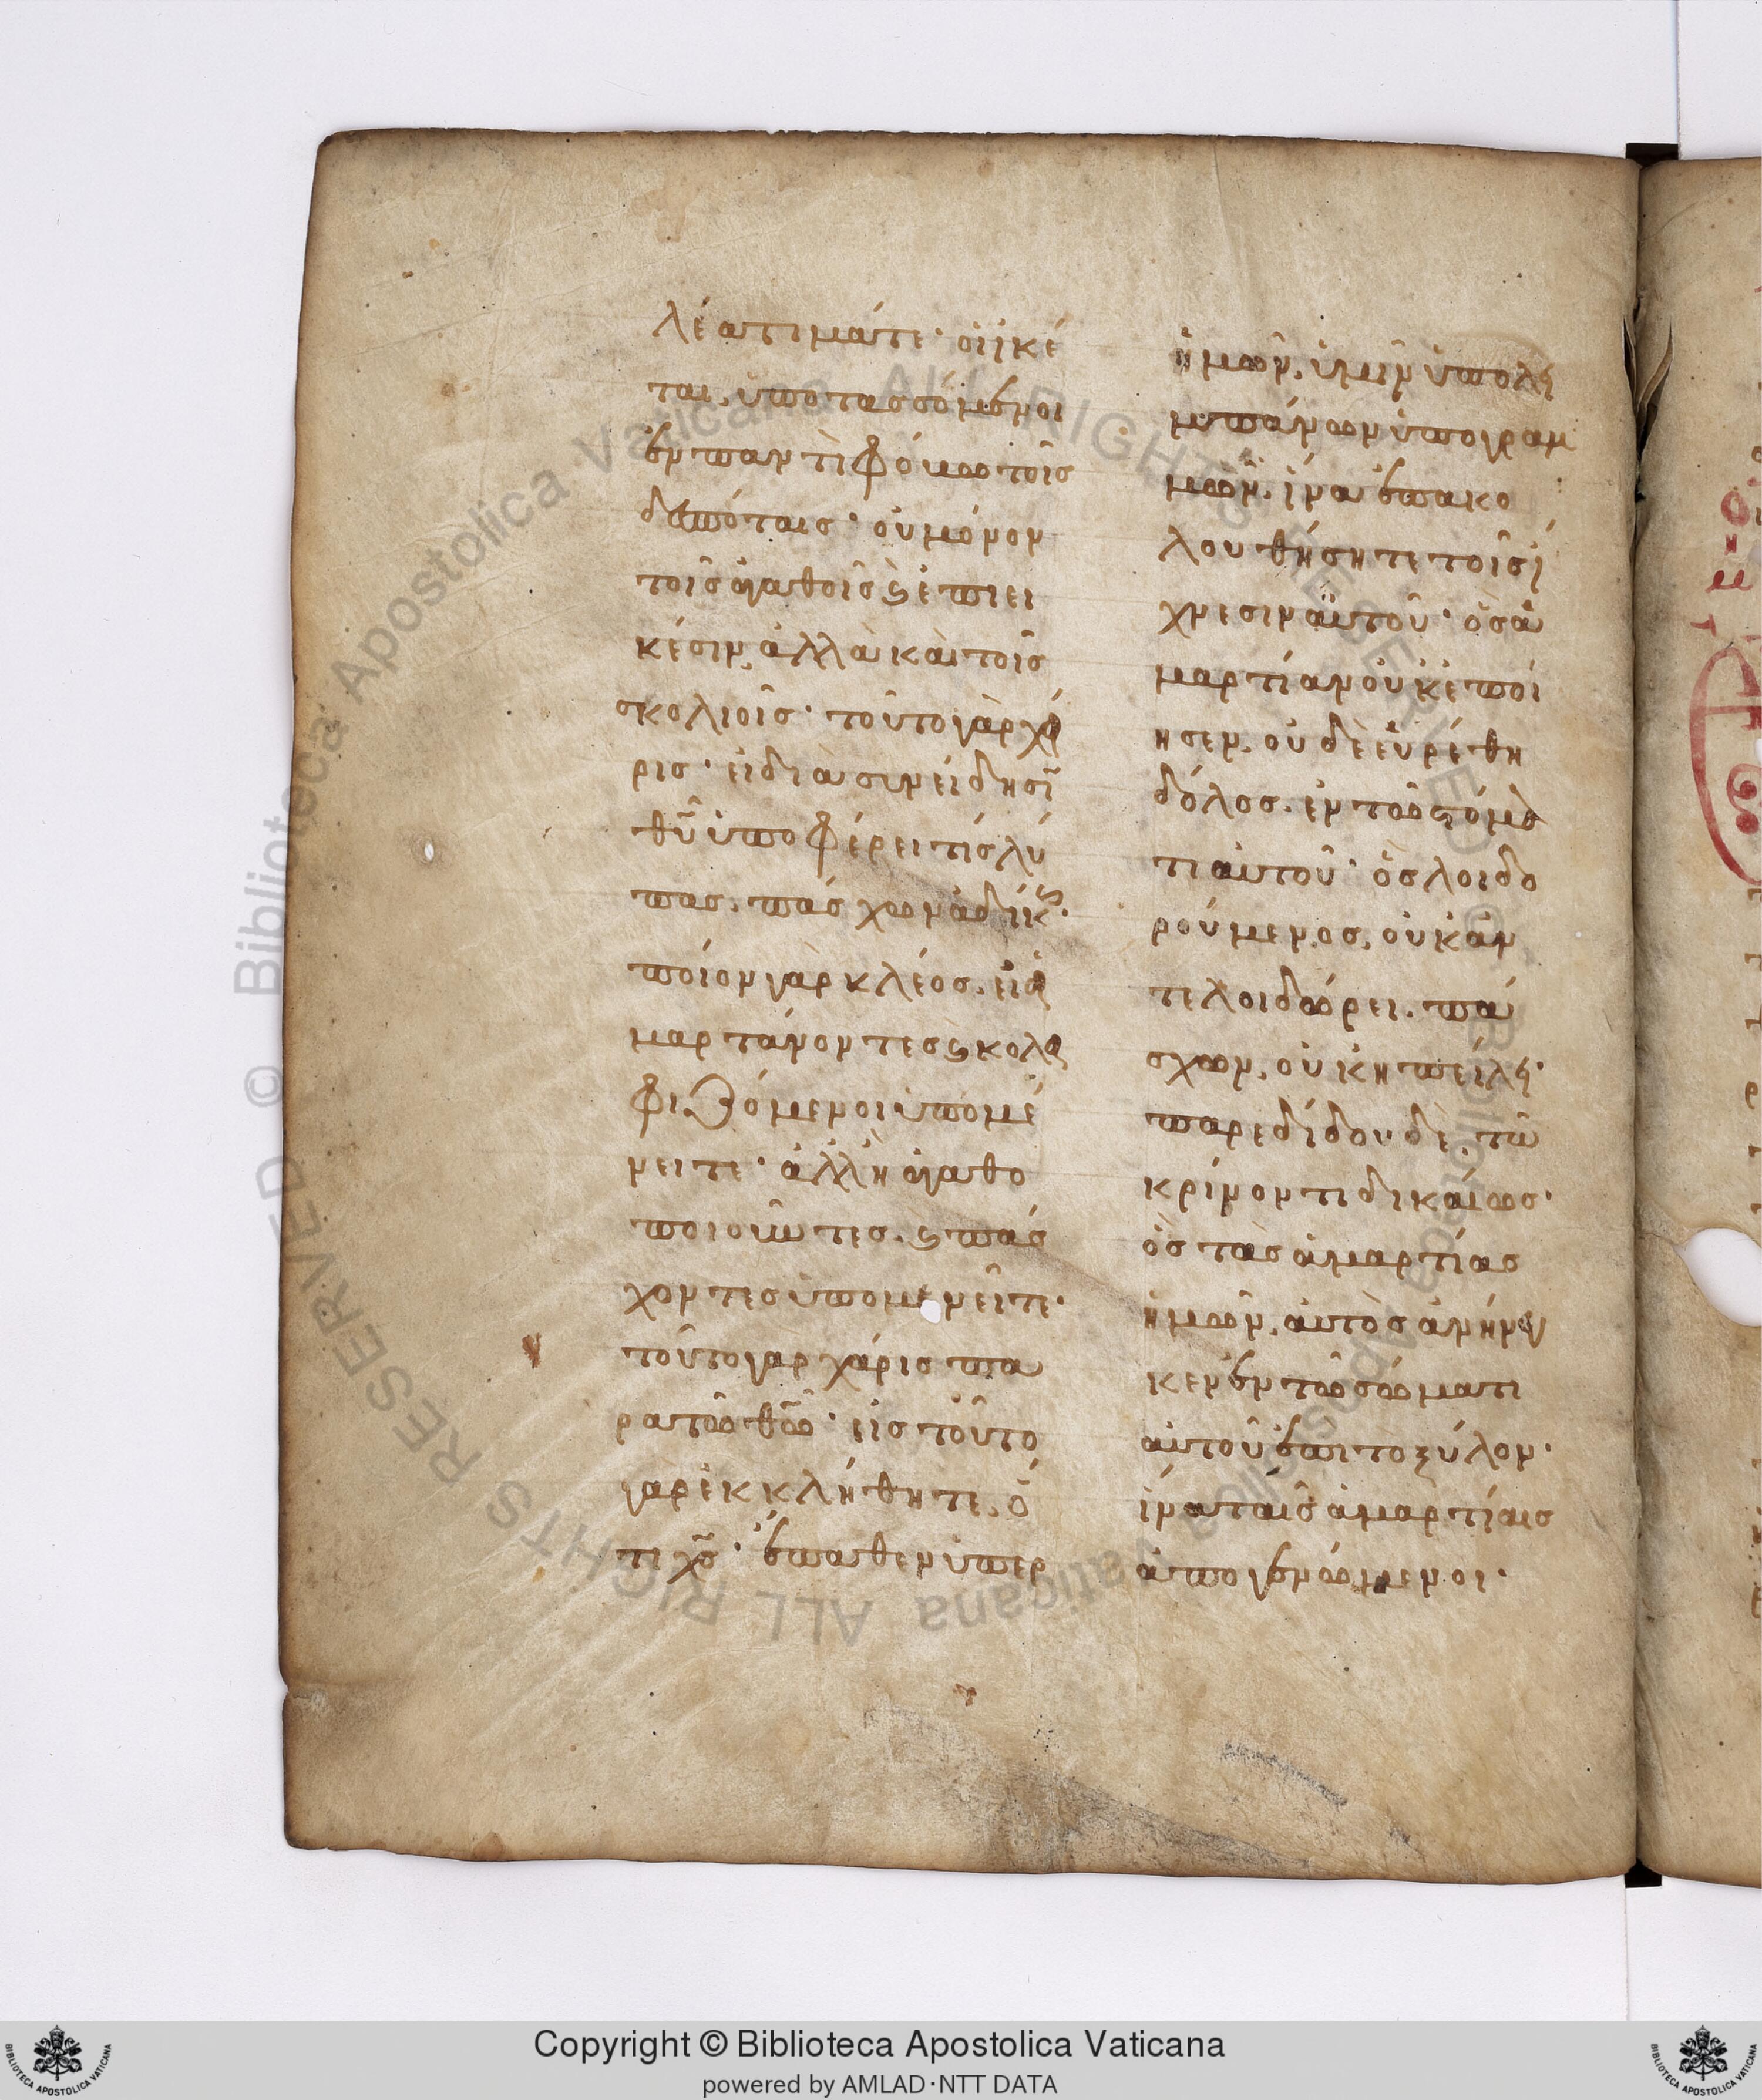 λέα τιμάτε· οἱ ἱκέ
ται, ὑποτασσόμενοι
ἐν παντὶ φόβω τοῖσ
δεσπόταισ· οὐ μόνον
τοῖσ ἀγαθοῖσ ϗ ἐπιει
κέσιν, ἀλλὰ καὶ τοῖσ
σκολιοῖσ· τοῦτο γὰρ χά
ρισ· εἰ διὰ συνείδησῖ
θῦ ὑποφέρει τίσ λύ
πασ. πάσχων ἀδίκς·
ποίον γὰρ κλέοσ. εἰ ἁ
μαρτάνοντεσ ϗ κολα
φιζόμενοι ὑπομέ
νειτε· ἀλλ' ἢ ἀγαθο
ποιοῦντεσ. ϗ πάσ
χοντεσ ὑπομενεῖτε·
τοῦτο γαρ χάρισ πα
ρα τῶ θῶ· εἰσ τοῦτο
γὰρ ἐκκλήθητε, ὅ
τι χσ· ἔπαθεν ὑπερ
ἡμῶν, ὑμῖν ὑπολη
μπάνων ὑπογραμ
μῶν. ἵνα ἐπακο
λουθήσητε τοῖσ ἴ
χνεσιν αὐτοῦ· ὃσ ἁ
μαρτίαν οὐκ ἐποί
ησεν. οὐδὲ εὑρέθη
δόλοσ. ἐν τῶ στόμα
τι αὐτοῦ· ὃσ λοιδο
ρούμενοσ, οὐκ ἀν
τελοιδώρει. πά
σχων, οὐκ ηπείλη·
παρεδίδου δὲ, τῶ
κρίνοντι δικαίωσ·
ὃσ τὰσ ἁμαρτίασ
ἡμῶν, αὐτὸσ ἀνήνεγ
κεν ἐν τῶ σώματι
αὐτοῦ ἐπι το ξύλον·
ἵνα ταῖσ ἁμαρτίαισ
ἀπογενώμενοι·
Copyright © Biblioteca Apostolica Vaticana
powered by AMLAD·NTT DATA